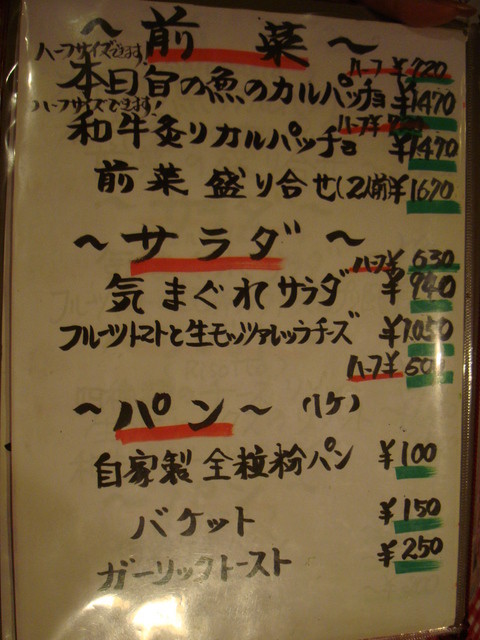 ～前菜～
ハーフサイズできます!
ハーフ ¥720
本日旬の魚のカルパッチョ ¥1470
ハーフサイズできます!
ハーフ¥
和牛炙りカルパッチョ ¥1470
前菜盛り合せ(2人前) ¥1670
～サラダ～
ハーフ¥ 630
気まぐれサラダ ¥940
フルーツトマトと生モッツァレッラチーズ ¥1.050
ハーフ¥
～パン～ (1ケ)
自家製全粒粉パン ¥100
バケット ¥150
ガーリックトースト ¥250